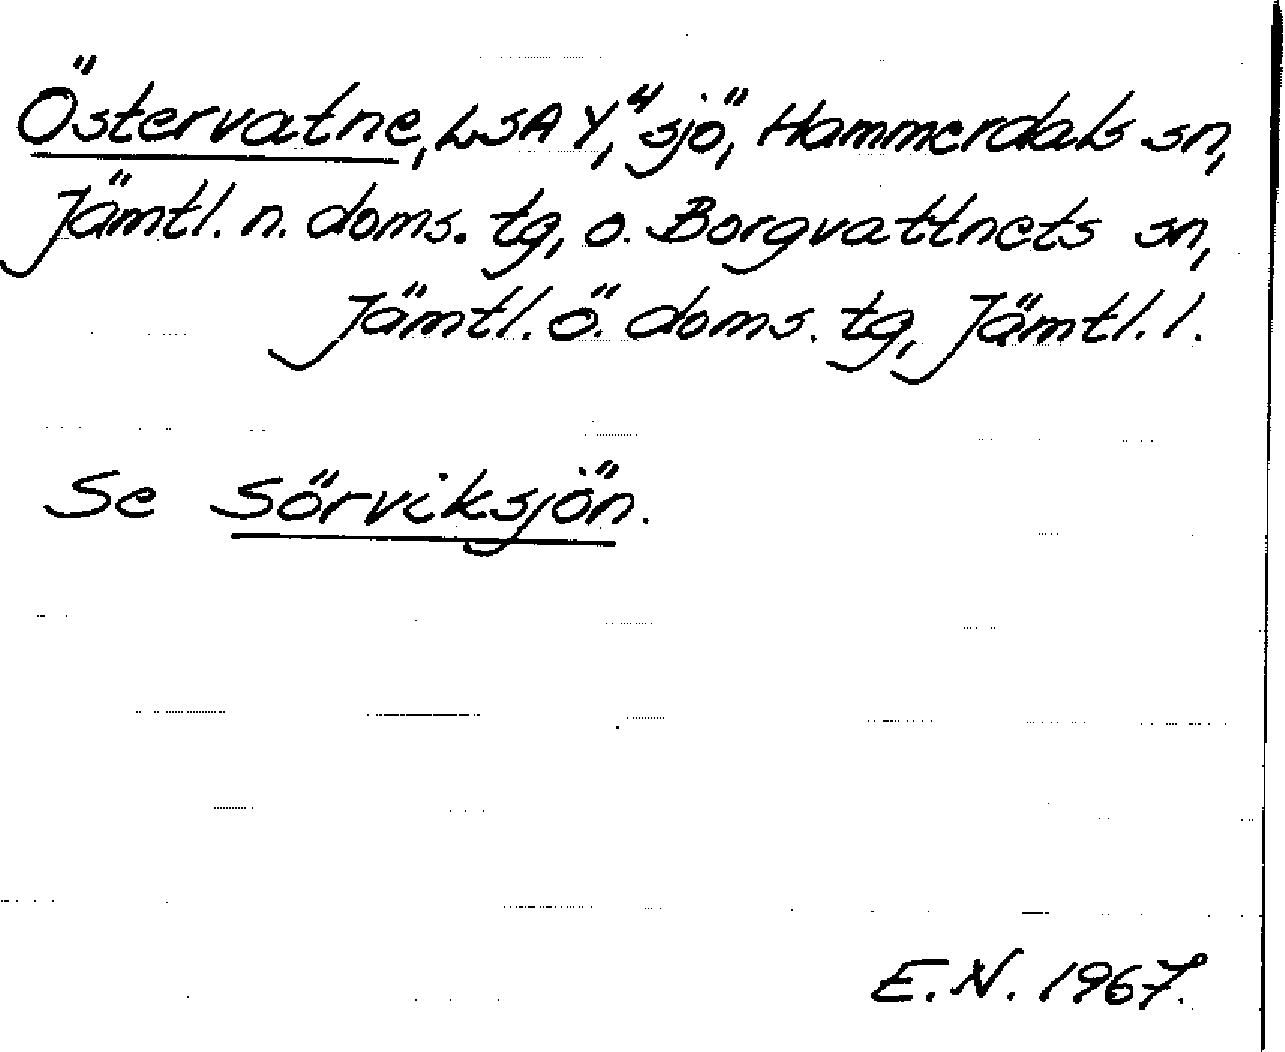 Östervatne, LSA Y, "sjö", Hammerdals sn,
Jämtl. n. doms. tg, o. Borgvattnets sn,
Jämtl. ö. doms. tg, Jämtl. l.
Se Sörviksjön.
E.N. 1967.